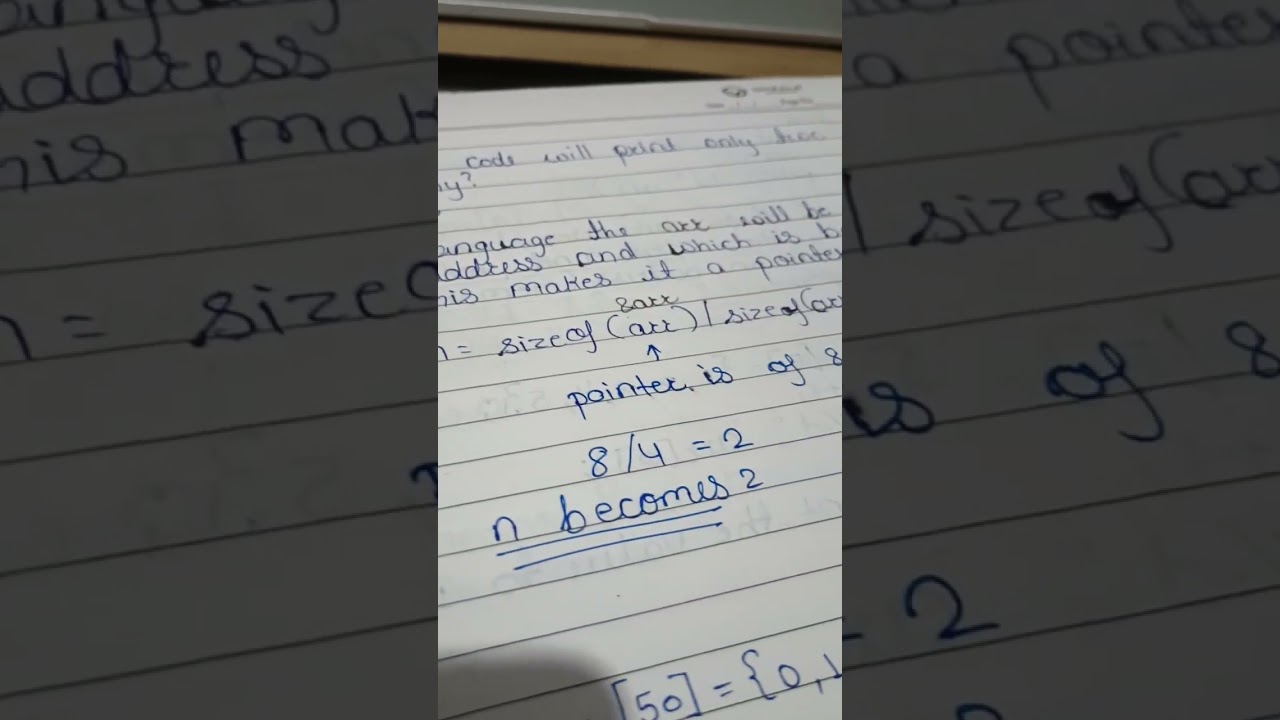 code will print only
y?
anguage the arr will be
ddress and which is b
his makes it a pointer
8arr
n = sizeof (arr) / sizeof(arr
↑
pointer is of 8
8/4 = 2
n becomes 2
[50] = {0,1